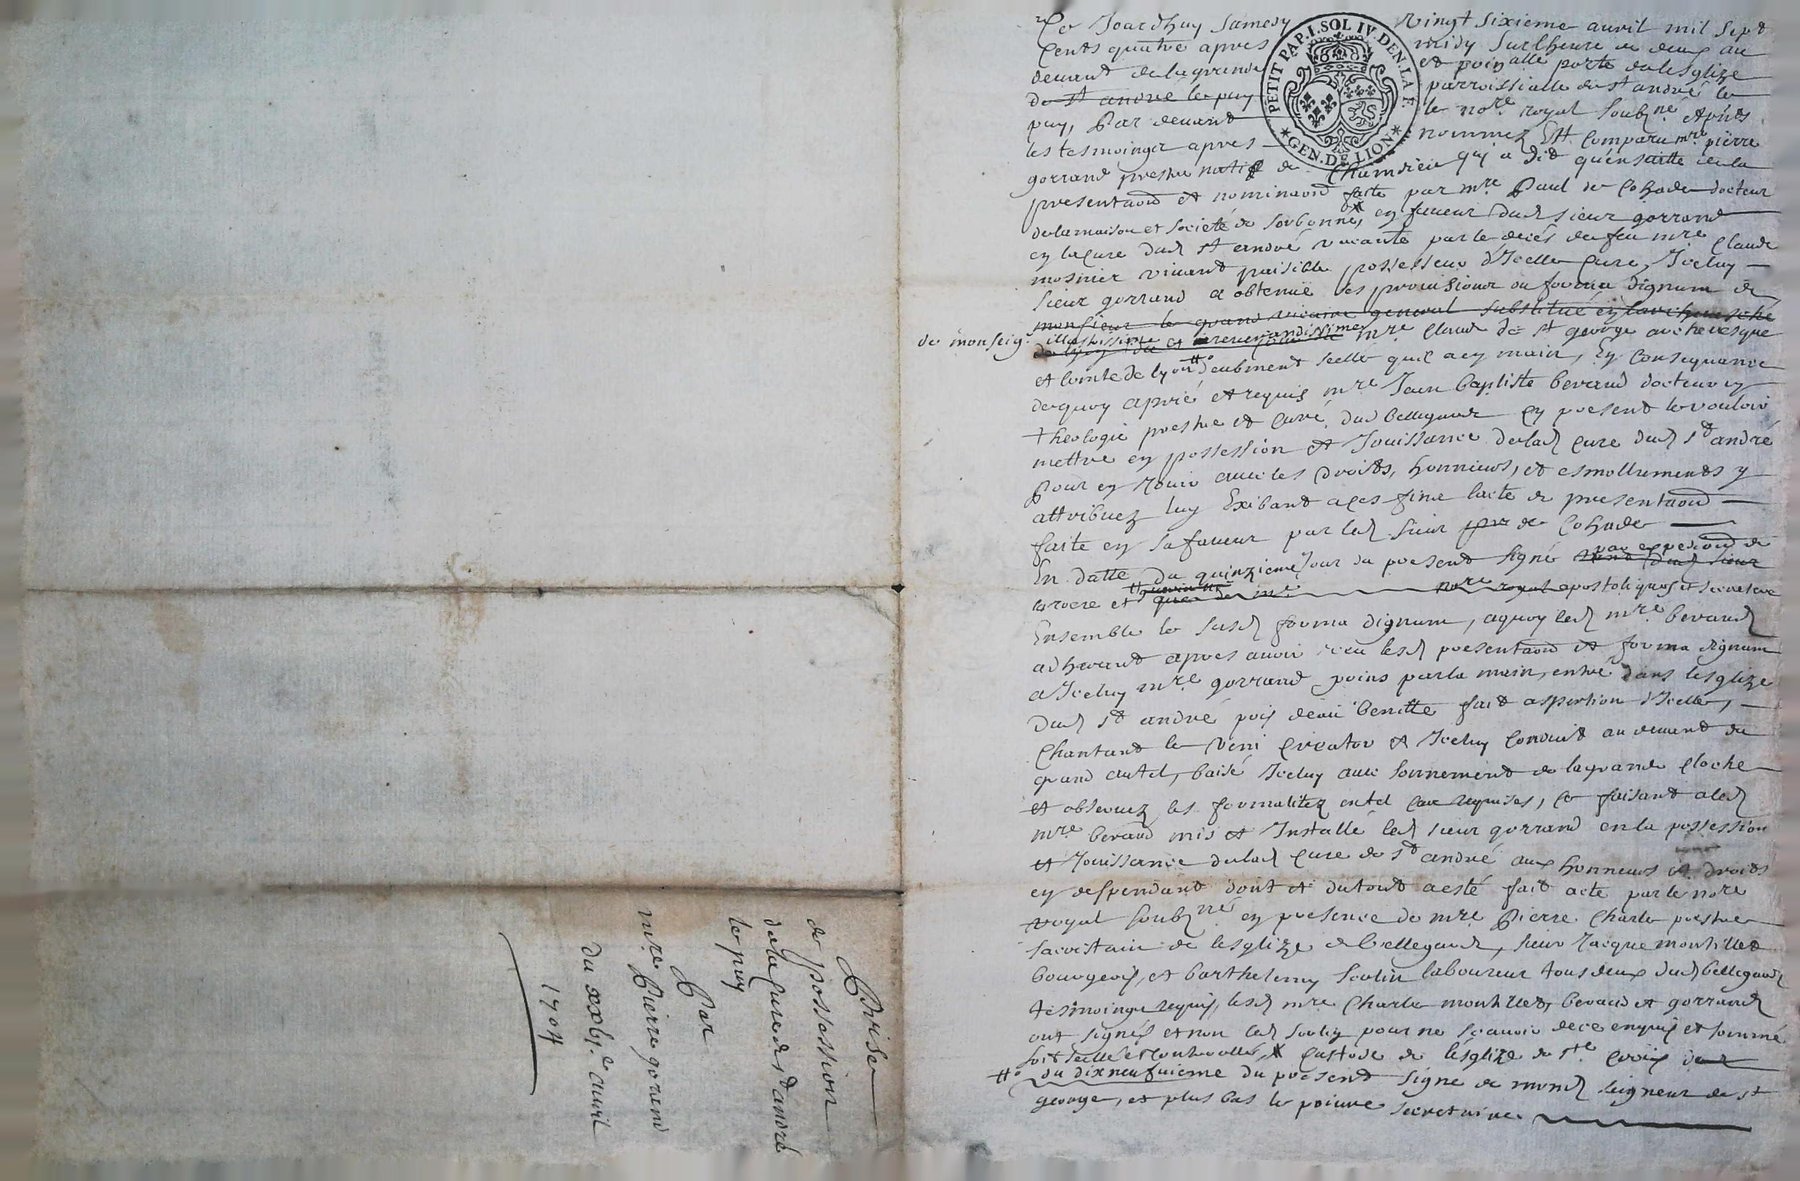 Ce Jourdhuy samedy vingt sixieme auril mil sept
cents quatre apres midy surlheure de deux au
deuant de lagrande et prin alle porte de lesglize
de st andré le puy parroissialle de st andré le
puy, Par deuant le nore royal soubzné et pñts
les tesmoings apres nommez Est comparu mre pierre
gorrand prestre natif de Chamdieu qui a dit quensuitte de la
presentaõn et nominaõn faite par mre Paul de Cohade docteur
delamaison et societé de sorbonne, en faueur dud sieur gorrand
en lacure dud st andré vacante par le decés de feu mre Claude
mosnier viuant paisible possesseur d'Icelle Cure, Iceluy
sieur gorrand a obtenue ses prouisions ou forma dignum de
monsieur le grand vicaire general substitué en larcheuesché
de monseig. illustrissime et reuerendissime mre Claude de st george archevesque
et Comte de Lyon deubment scellé quil a en main, En Consequance
dequoy a prié et requis mre Jean baptiste beraud docteur en
theologie prestre et curé dud bellegarde cy present le vouloir
mettre en possession et Jouissance delad cure dud st andré
Pour en Jouir auec les droits, honneurs, et esmolluments y
attribuez luy Exibant a ces fins lacte de presentaõn
faite en sa faueur par led sieur de Cohade
En datte du quinzieme Jour du present signé par expedion de
larocre et nore royal apostolique et secretere
Ensemble le susd forma dignum, aquoy led mre beraud
adherant apres auoir veu lesd presentaõn et forma dignum
a Iceluy mre gorrand prins par la main, entré dans lesglize
dud st andré pris deau benitte fait aspertion d'Icelle,
Chantant le Veni Creator et Iceluy Conduit au deuant du
grand autel, baisé Iceluy auec sonnement de lagrande cloche
et obseruez les formalitez en tel cas requises, Ce faisant a led
mre beraud mis et Installé led sieur gorrand en la possession
et Jouissance delad Cure de st andré aux honneurs et droits
en despendant dont et du tout a esté fait acte par le nore
royal soubzné en presence de mre Pierre Charle prestre
sacristain de lesglize de bellegarde, sieur Jacque montillet
bourgeois, et barthelemy soulin laboureur tous deux dud bellegarde
tesmoings requis, lesd mre Charle montillet, beraud et gorrand
ont signés et non led soulin pour ne sçauoir de ce enquis et sommé
soit scellé et Controollé, X Custode de lésglize de ste Croix
#o du dixneufuieme du present signé de mond seigneur de st
george, et plus bas le poiure secretaire.
PETIT PAP. 1. SOL IV. DEN. LA F.
* GEN. DE LION *
Prise
de possession
de la Cure de st andré
le puy
Par
mre Pierre gorrand
du xxbj.e auril
1704